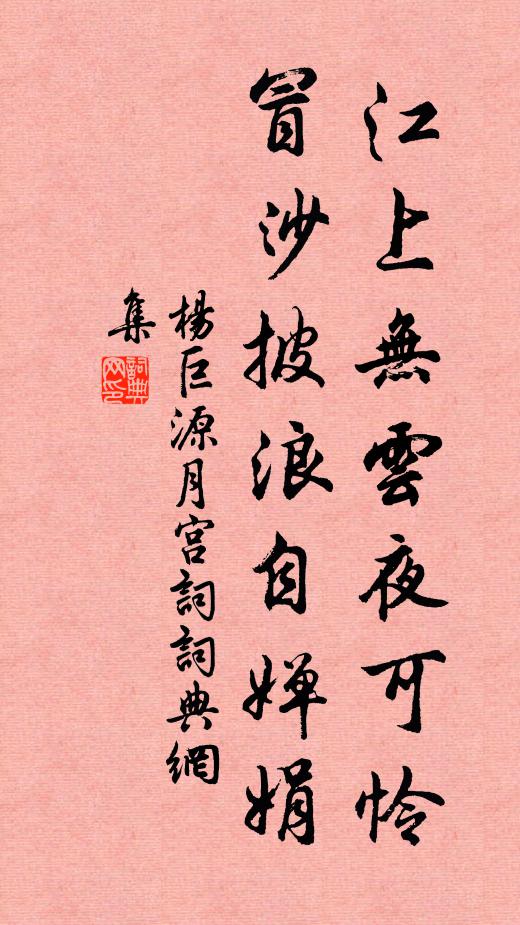 江上無雲夜可怜
冒沙披浪自婵娟
楊巨源月宫詞詞典網
集
詞典
网印